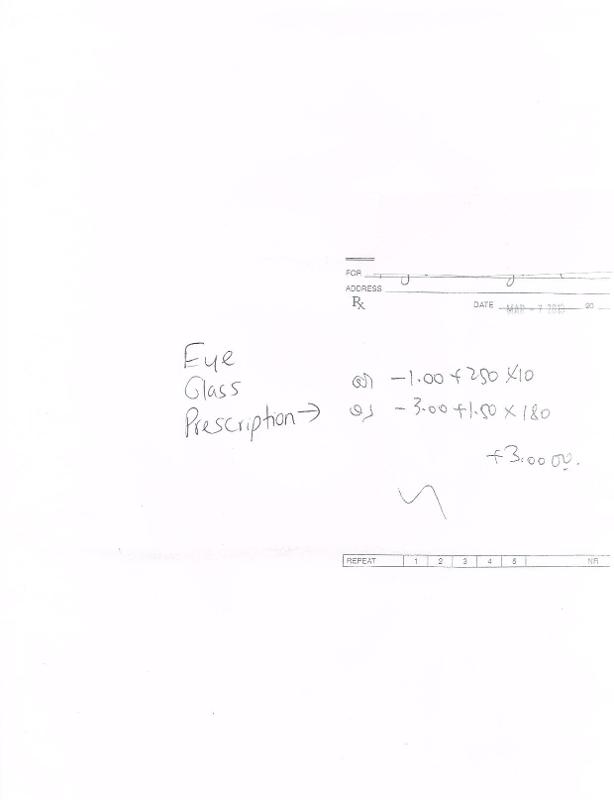 FOR
ADDRESS
Rx
DATE MAR - 7 2013 20
Eye
Glass
Prescription →
OD -1.00 +250 x10
OS -3.00 +1.50 x 180
+3.00 OU.
REPEAT 1 2 3 4 5 NR